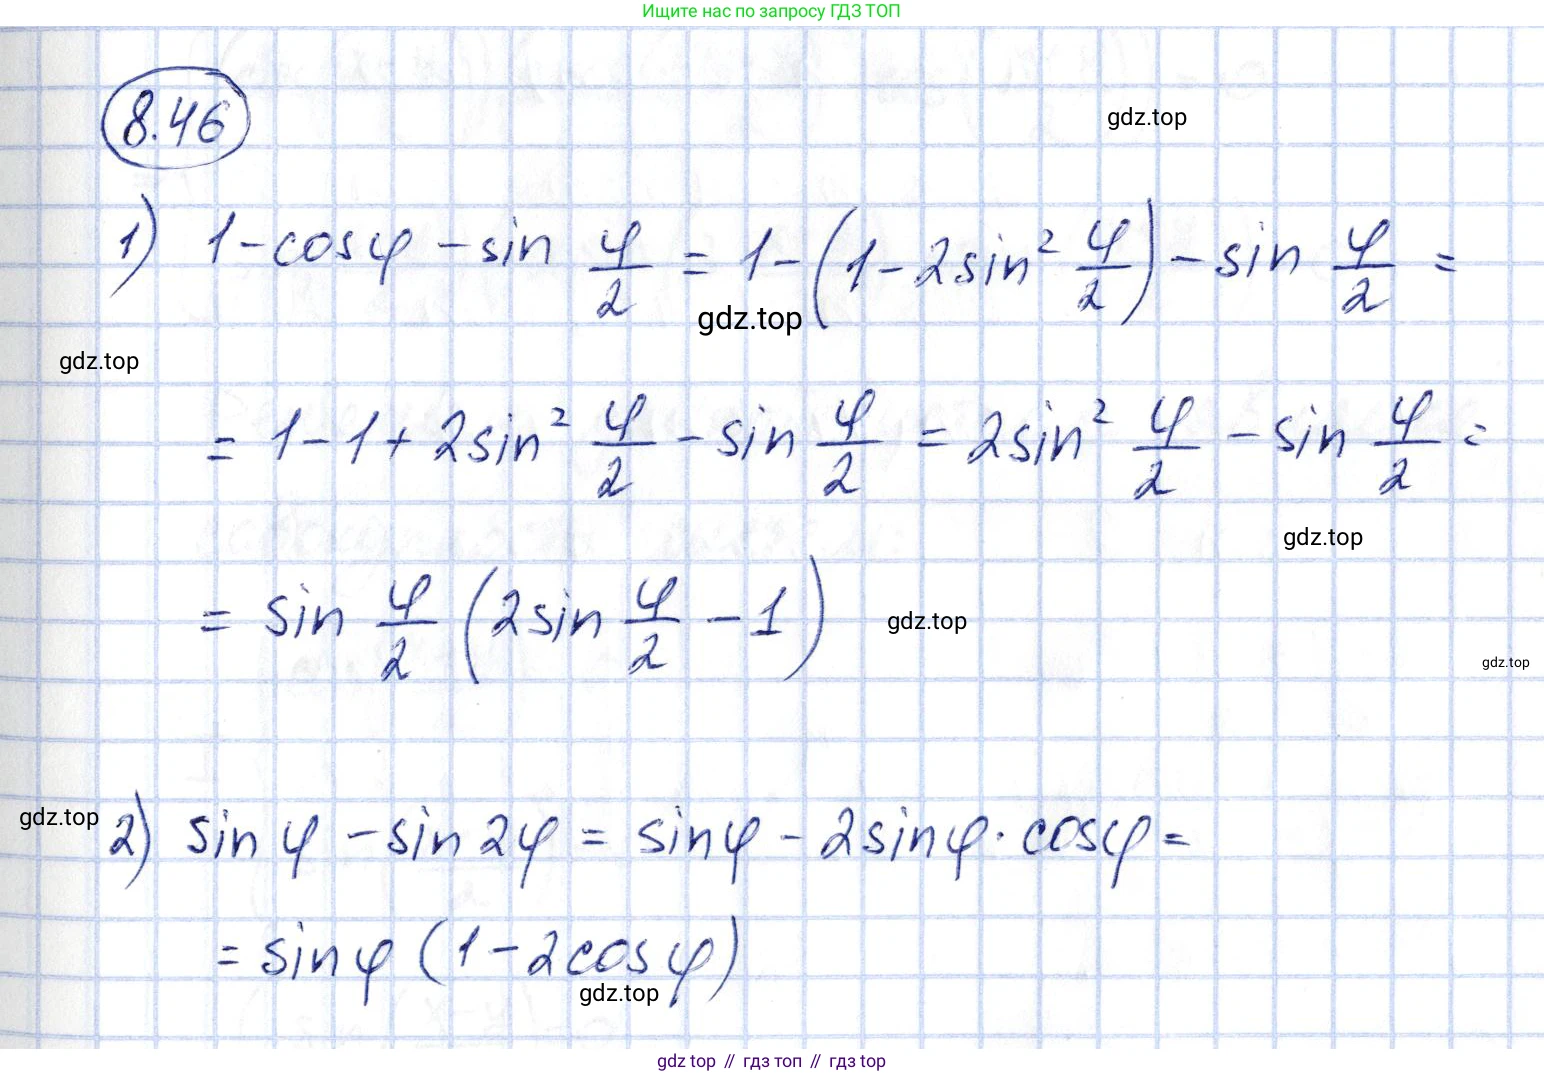 Ищите нас по запросу ГДЗ ТОП
8.46
gdz.top
1) 1 - cosφ - sin φ/2 = 1 - (1 - 2sin² φ/2) - sin φ/2 =
gdz.top
gdz.top
= 1 - 1 + 2sin² φ/2 - sin φ/2 = 2sin² φ/2 - sin φ/2 =
gdz.top
= sin φ/2 (2sin φ/2 - 1)
gdz.top
gdz.top
gdz.top
2) sin φ - sin 2φ = sin φ - 2sin φ · cosφ =
= sin φ (1 - 2cosφ)
gdz.top
gdz top // гдз топ // gdz top